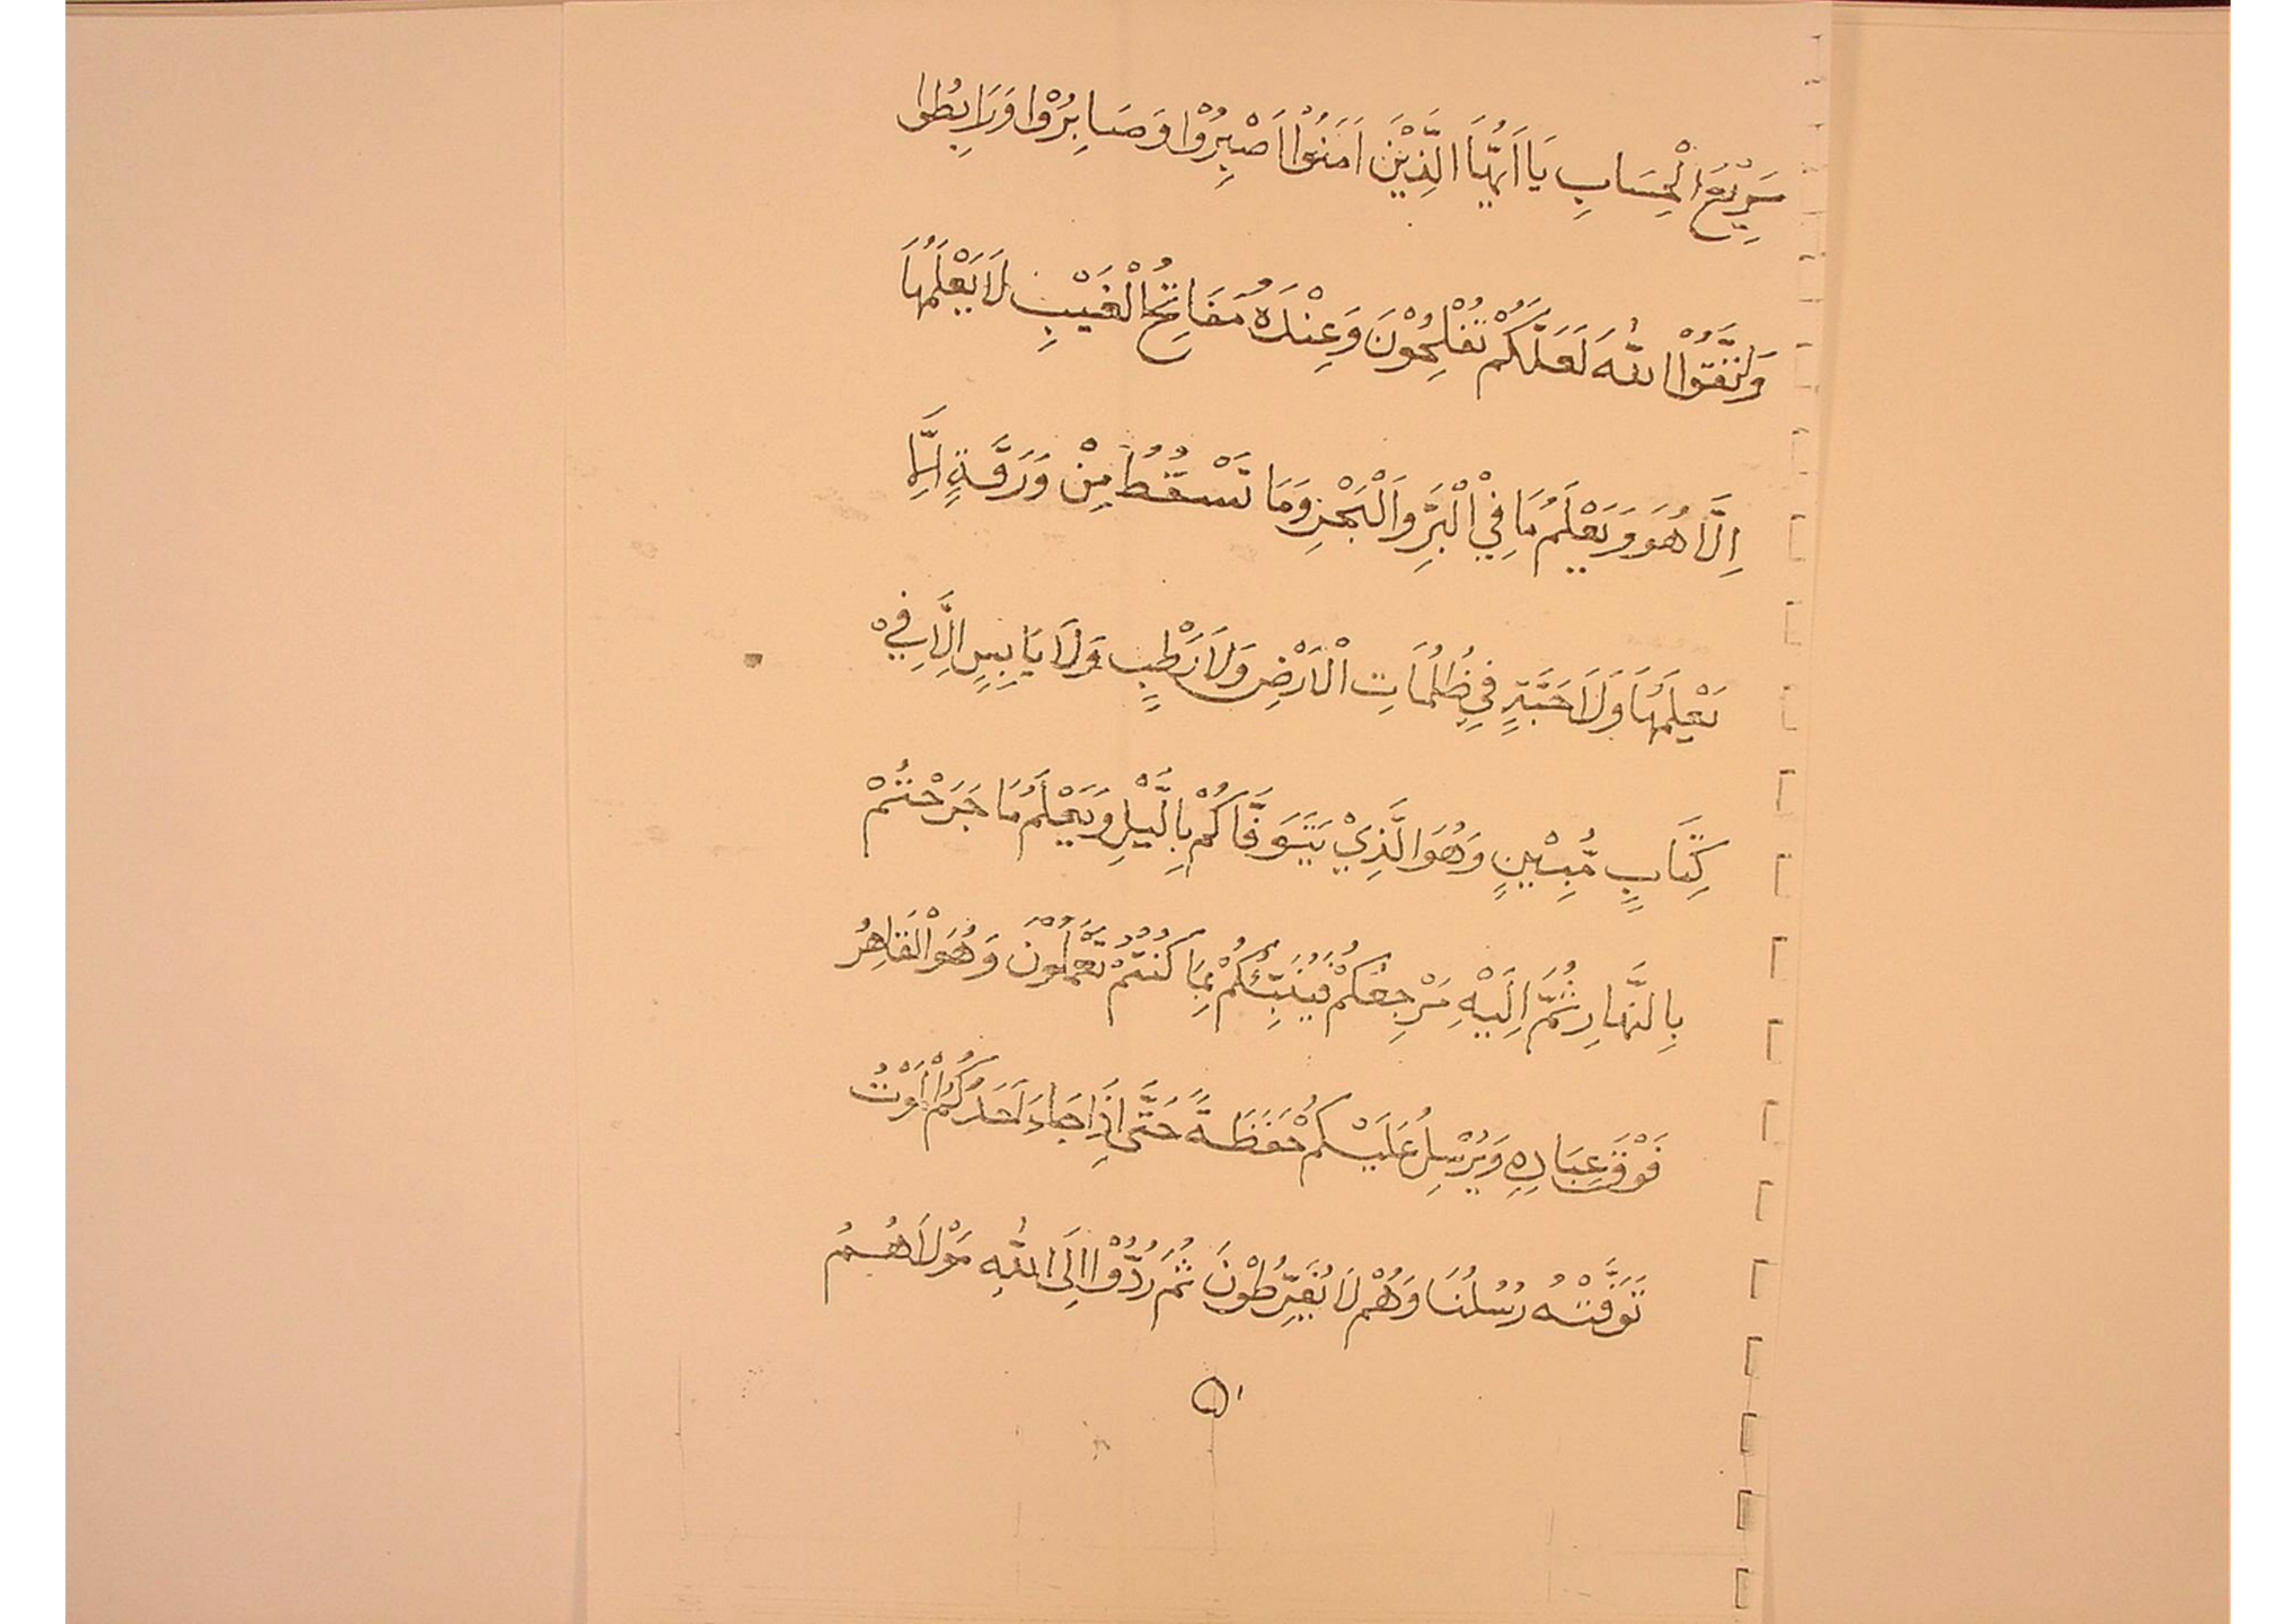 سَرِيْعُ الْحِسَابِ يَا اَيُّهَا الَّذِيْنَ اَمَنُوْا اَصْبِرُوْا وَصَابِرُوْا وَرَابِطُوا
وَاتَّقُوْا اللّٰهَ لَعَلَّكُمْ تُفْلِحُوْنَ وَعِنْدَهُ مَفَاتِحُ الْغَيْبِ لَا يَعْلَمُهَا
اِلَّا هُوَ وَيَعْلَمُ مَا فِيْ الْبَرِّ وَالْبَحْرِ وَمَا تَسْقُطُ مِنْ وَرَقَةٍ اِلَّا
يَعْلَمُهَا وَلَا حَبَّةٍ فِي ظُلُمَاتِ الْاَرْضِ وَلَا رَطْبٍ وَلَا يَابِسٍ اِلَّا فِيْ
كِتَابٍ مُّبِيْنٍ وَهُوَ الَّذِيْ يَتَوَفَّاكُمْ بِالَّيْلِ وَيَعْلَمُ مَا جَرَحْتُمْ
بِالنَّهَارِ ثُمَّ اِلَيْهِ مَرْجِعُكُمْ فَيُنَبِّئُكُمْ بِمَا كُنْتُمْ تَعْمَلُوْنَ وَهُوَ الْقَاهِرُ
فَوْقَ عِبَادِهِ وَيُرْسِلُ عَلَيْكُمْ حَفَظَةً حَتَّى اِذَا جَاءَ اَحَدَكُمُ الْمَوْتُ
تَوَفَّتْهُ رُسُلُنَا وَهُمْ لَا يُفَرِّطُوْنَ ثُمَّ رُدُّوْا اِلَى اللّٰهِ مَوْلَاهُمُ